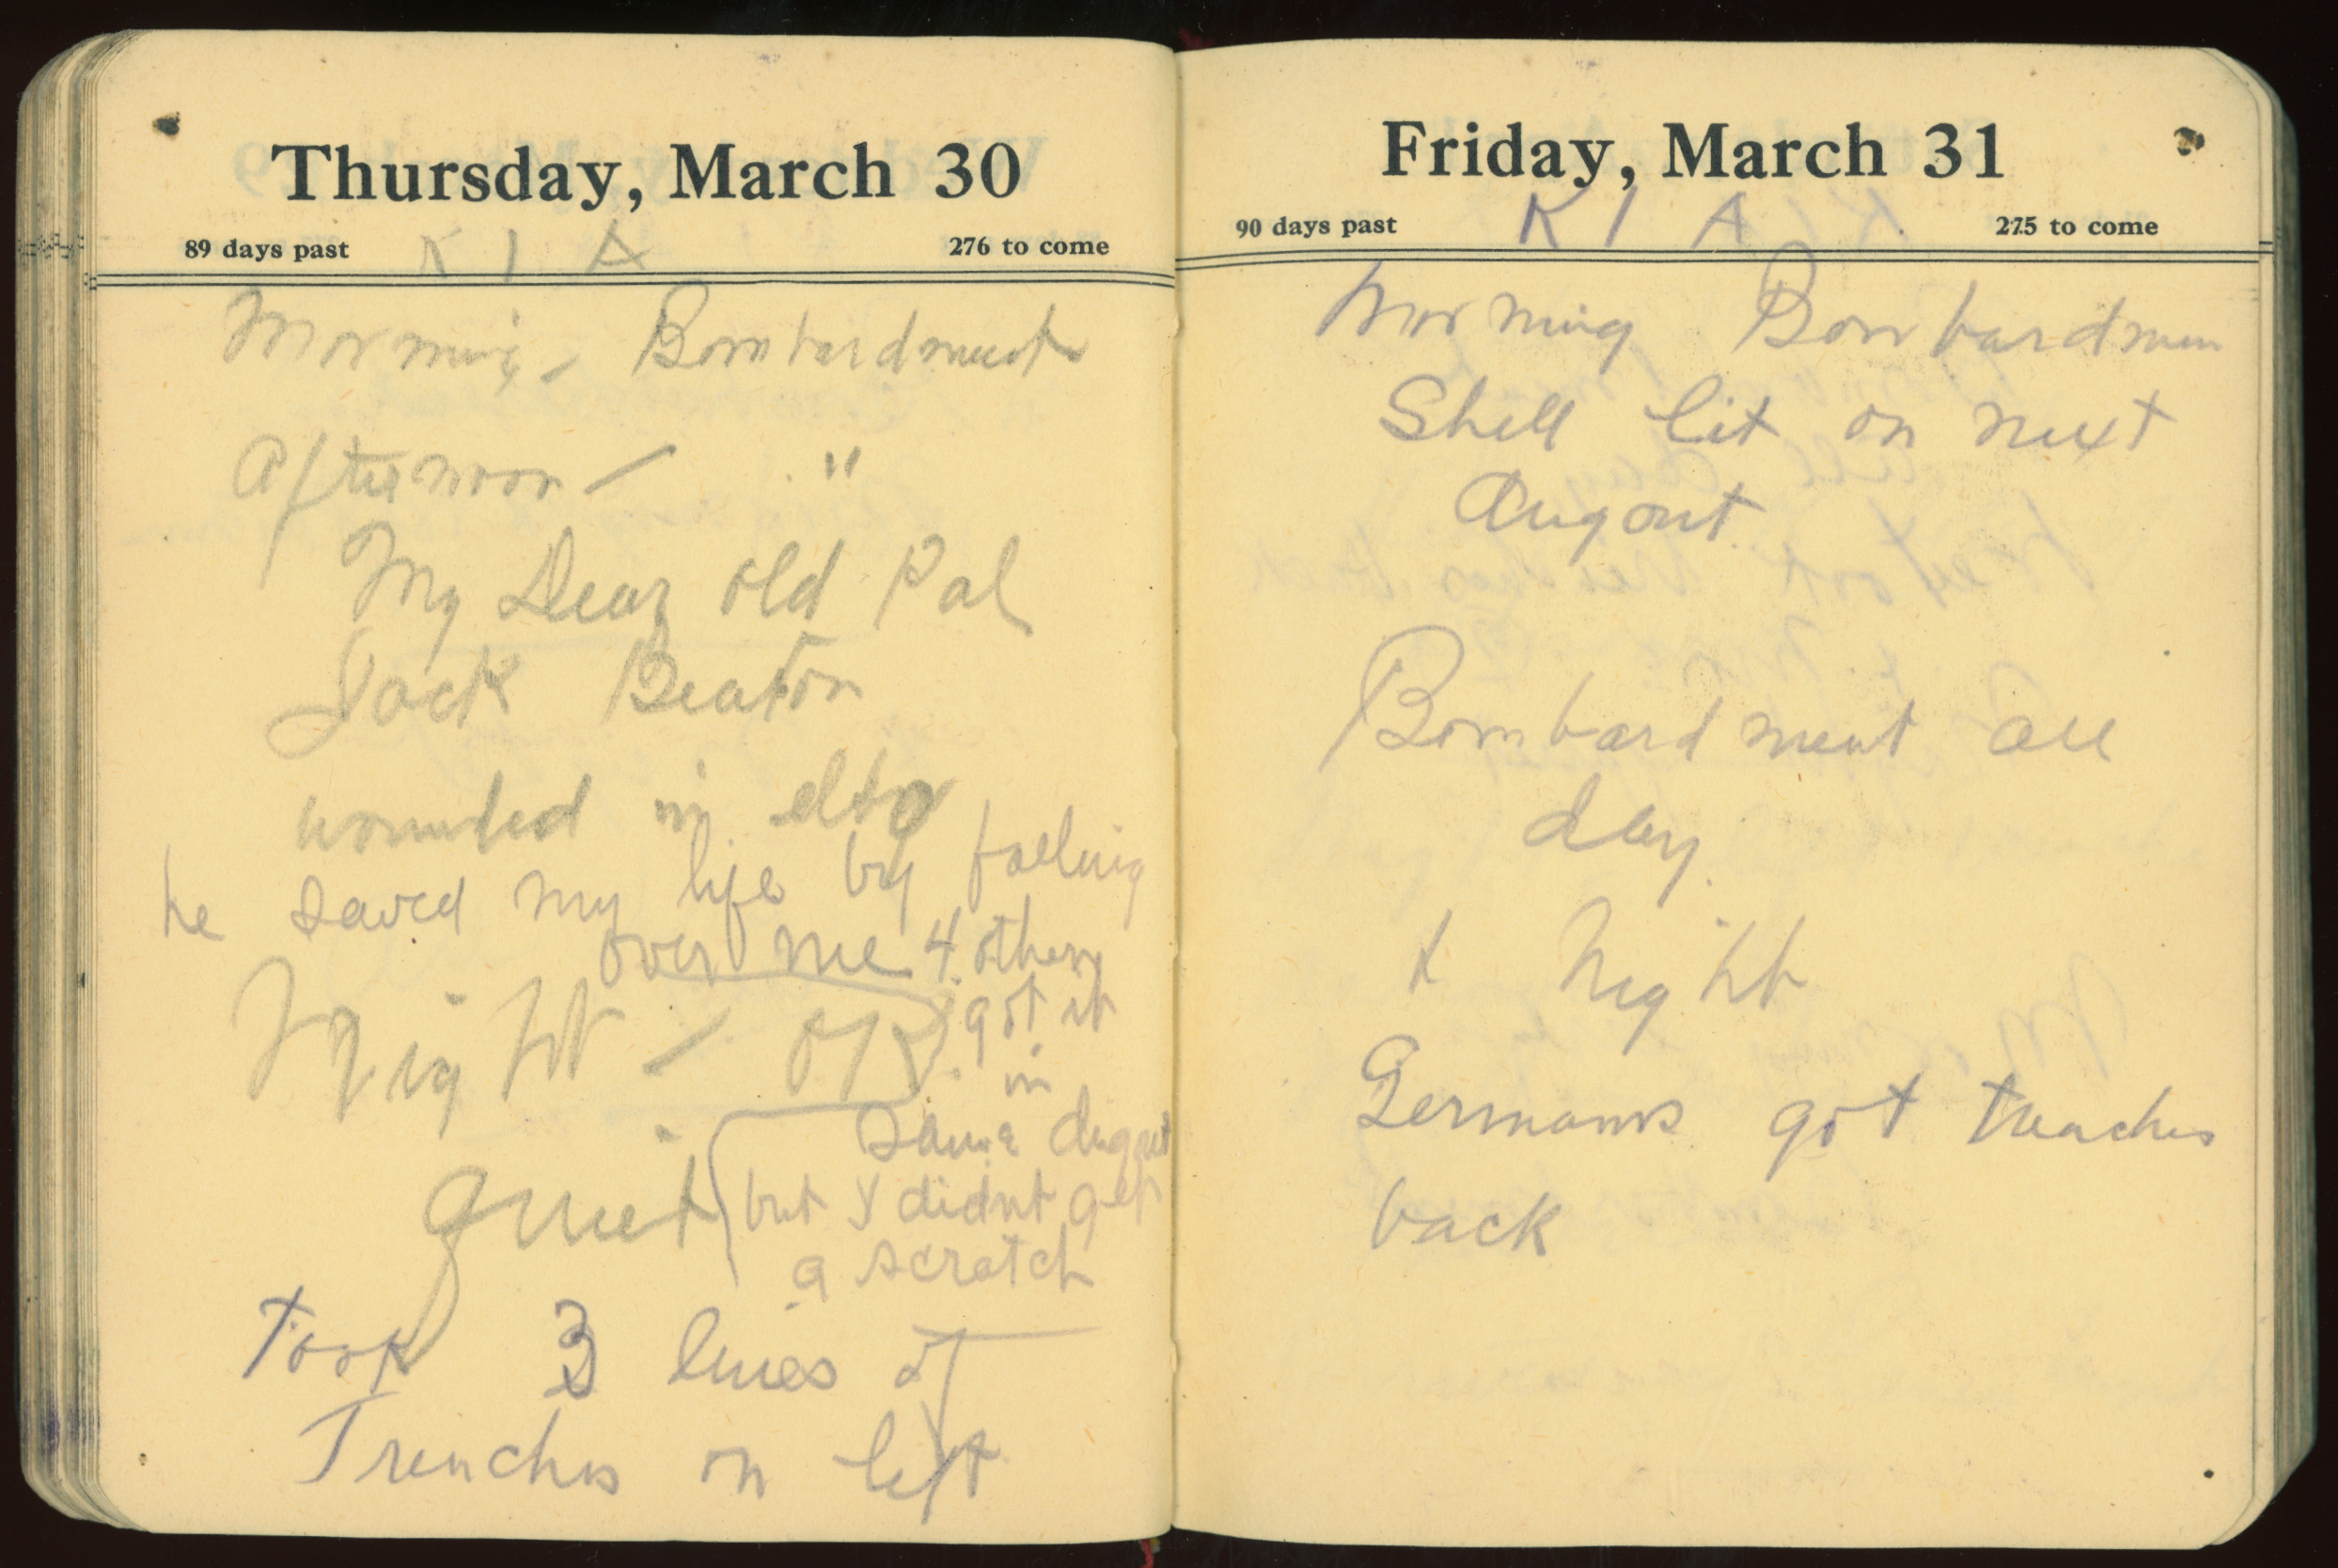 Thursday, March 30
89 days past K I A 276 to come
Morning - Bombardment
Afternoon - "
My Dear old Pal
Jack Beaton
wounded in
he saved my life by falling
over me 4 others
got it
in
Night - OK.
same dugout
quiet but I didnt get
a scratch
Took 3 lines of
Trenches on left
Friday, March 31
90 days past K I A 275 to come
Morning Bombardmen
Shell lit on next
dugout.
Bombardment all
day.
+ Night
Germans got trenches
back